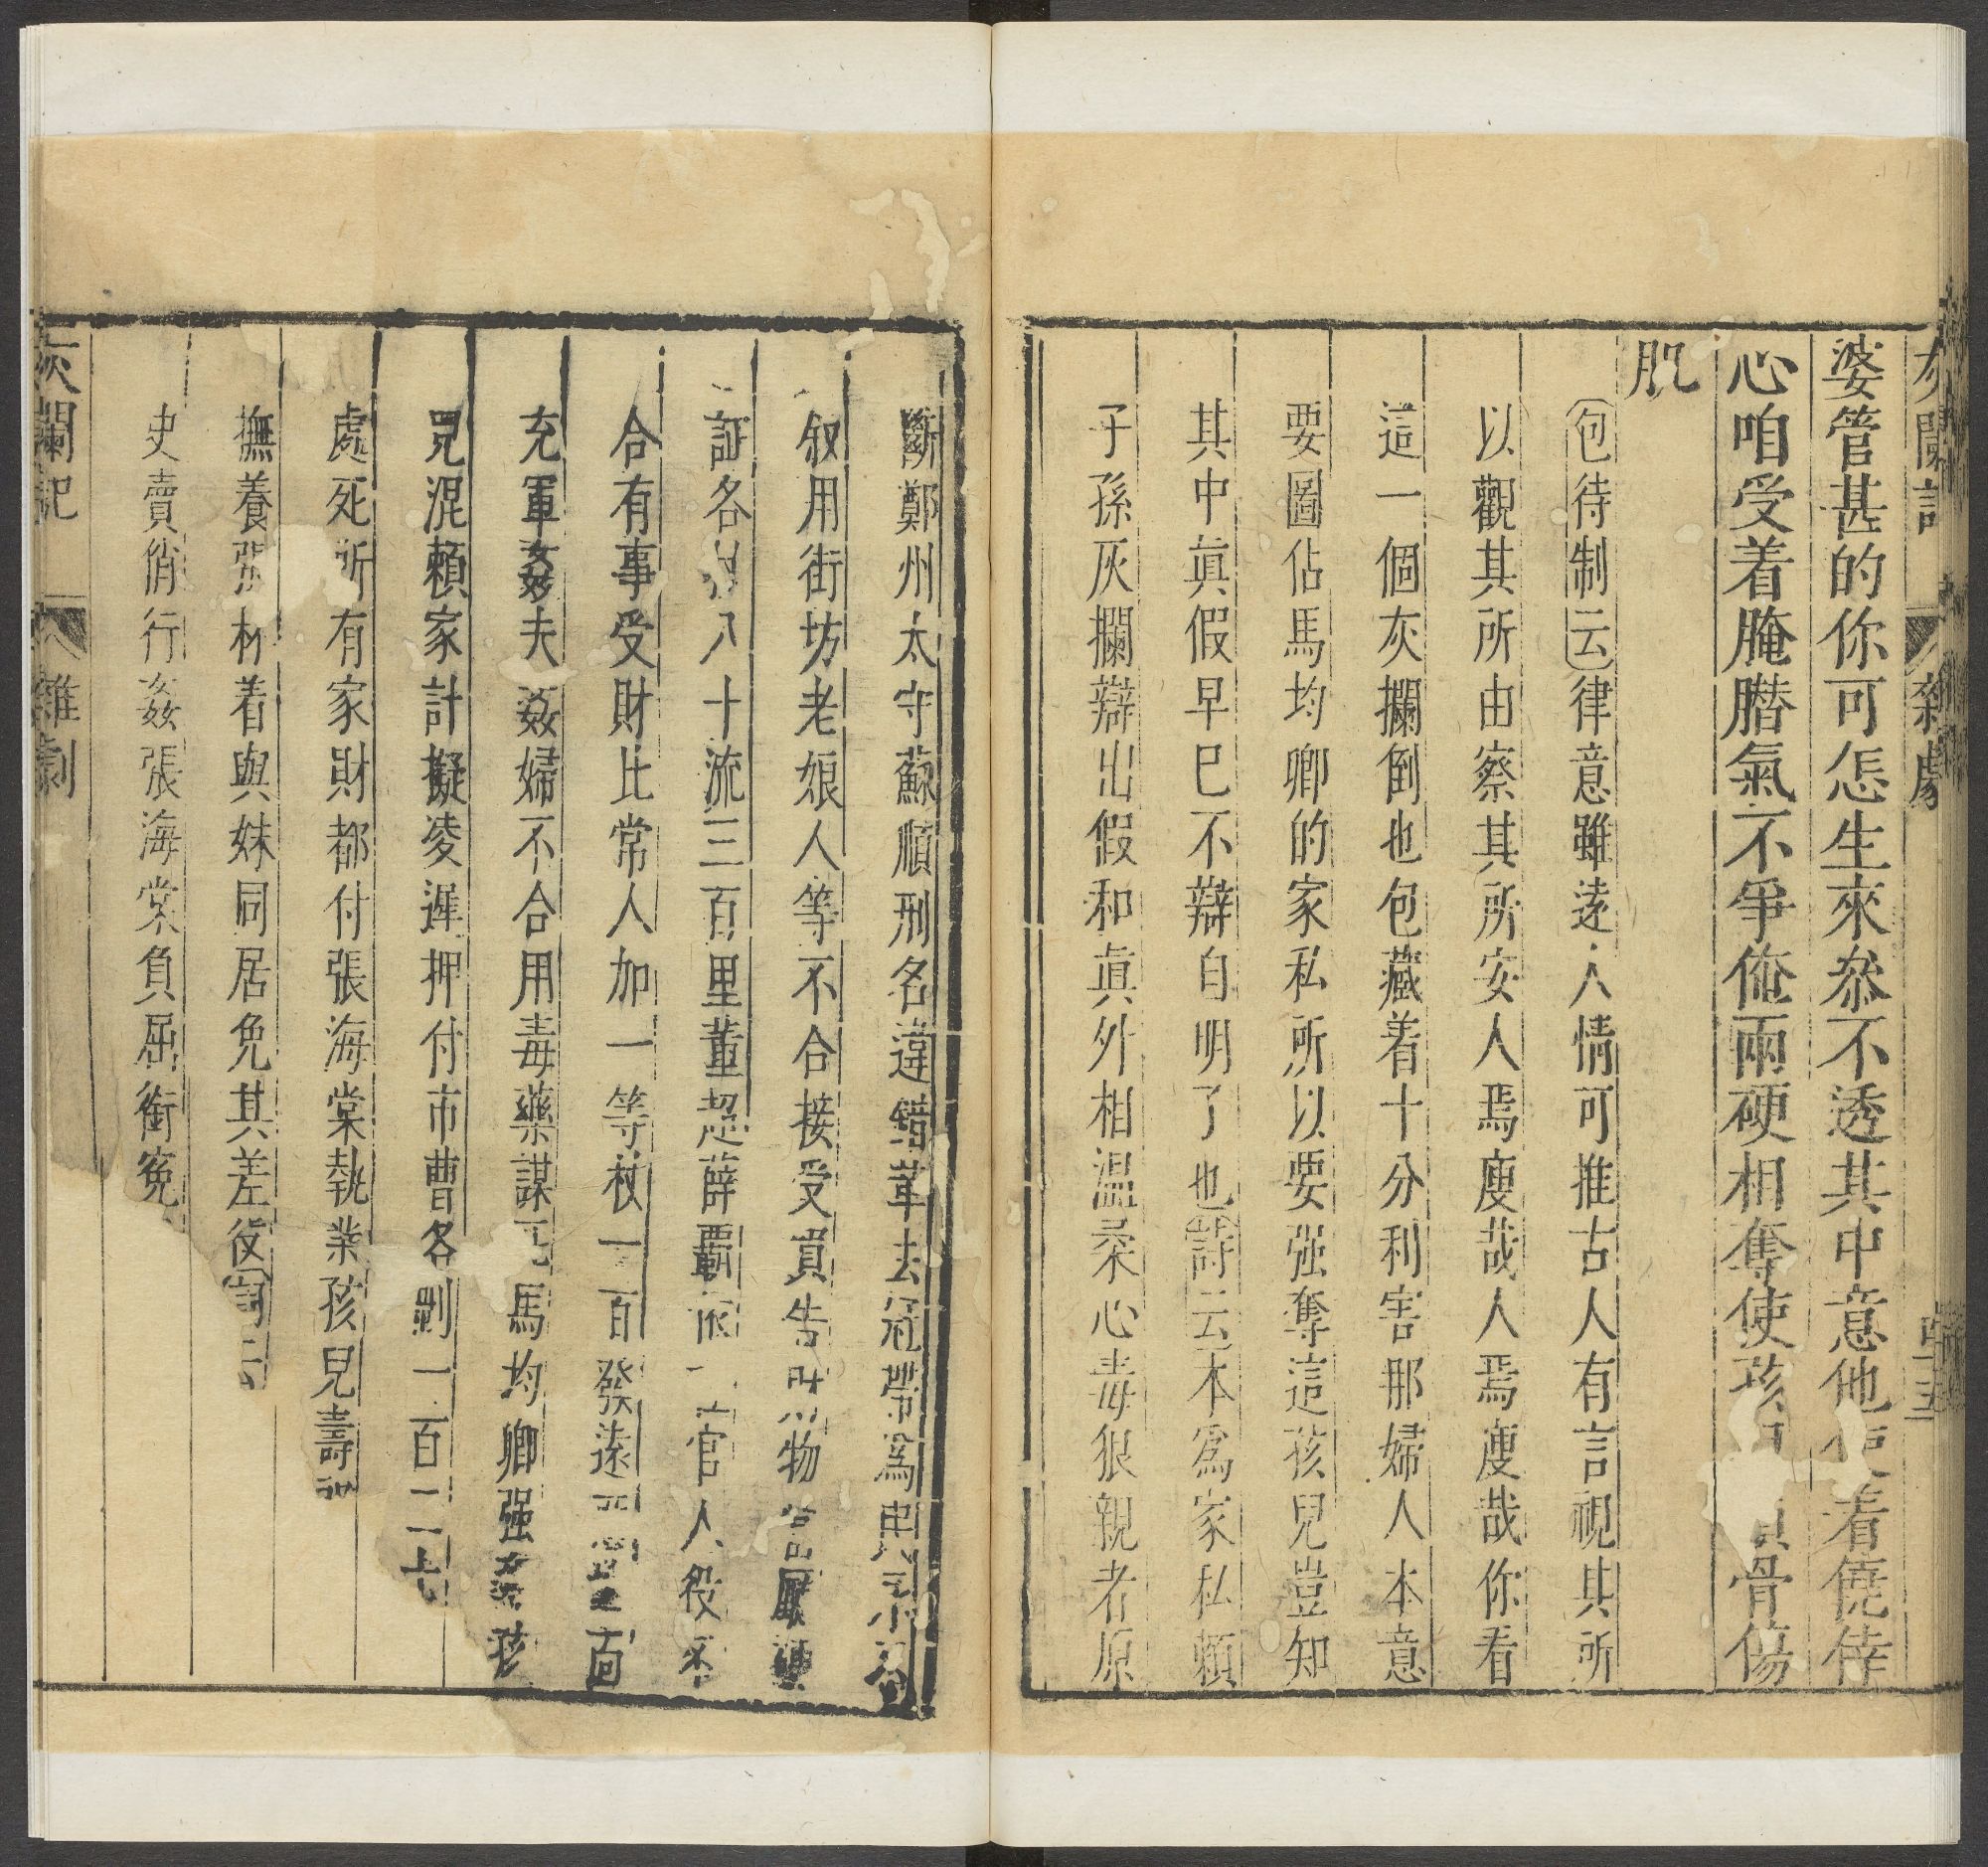 灰闌記 雜劇
婆管甚的你可怎生來叅不透其中意他使着僥倖
心咱受着腌臜氣不爭俺兩硬相奪使孩骨傷
肌
包待制云律意雖遠人情可推古人有言視其所
以觀其所由察其所安人焉廋哉人焉廋哉你看
這一個灰攔倒也包藏着十分利害那婦人本意
要圖佔馬均卿的家私所以要强奪這孩兒豈知
其中眞假早已不辯自明了也詩云本爲家私賴
子孫灰攔辯出假和眞外相温柔心毒狠親者原
斷鄭州太守蘇順刑名違錯革去冠帶爲民
叙用街坊老娘人等不合接受買告物
証各八十流三百里董超薛霸依官人役不
合有事受財比常人加一等杖一百發遠
充軍姦夫姦婦不合用毒藥謀馬均卿强孩
兒混賴家計擬凌遲押付市曹各剮一百二十
處死所有家財都付張海棠執業孩兒壽
撫養張林着與妹同居免其差役詞云
史賣俏行姦張海棠負屈銜寃
灰闌記 雜劇